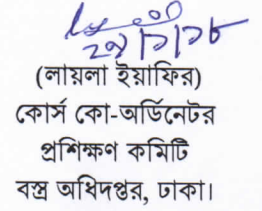 (লায়লা ইয়াফির)
কোর্স কো-অর্ডিনেটর
প্রশিক্ষণ কমিটি
বস্ত্র অধিদপ্তর, ঢাকা।